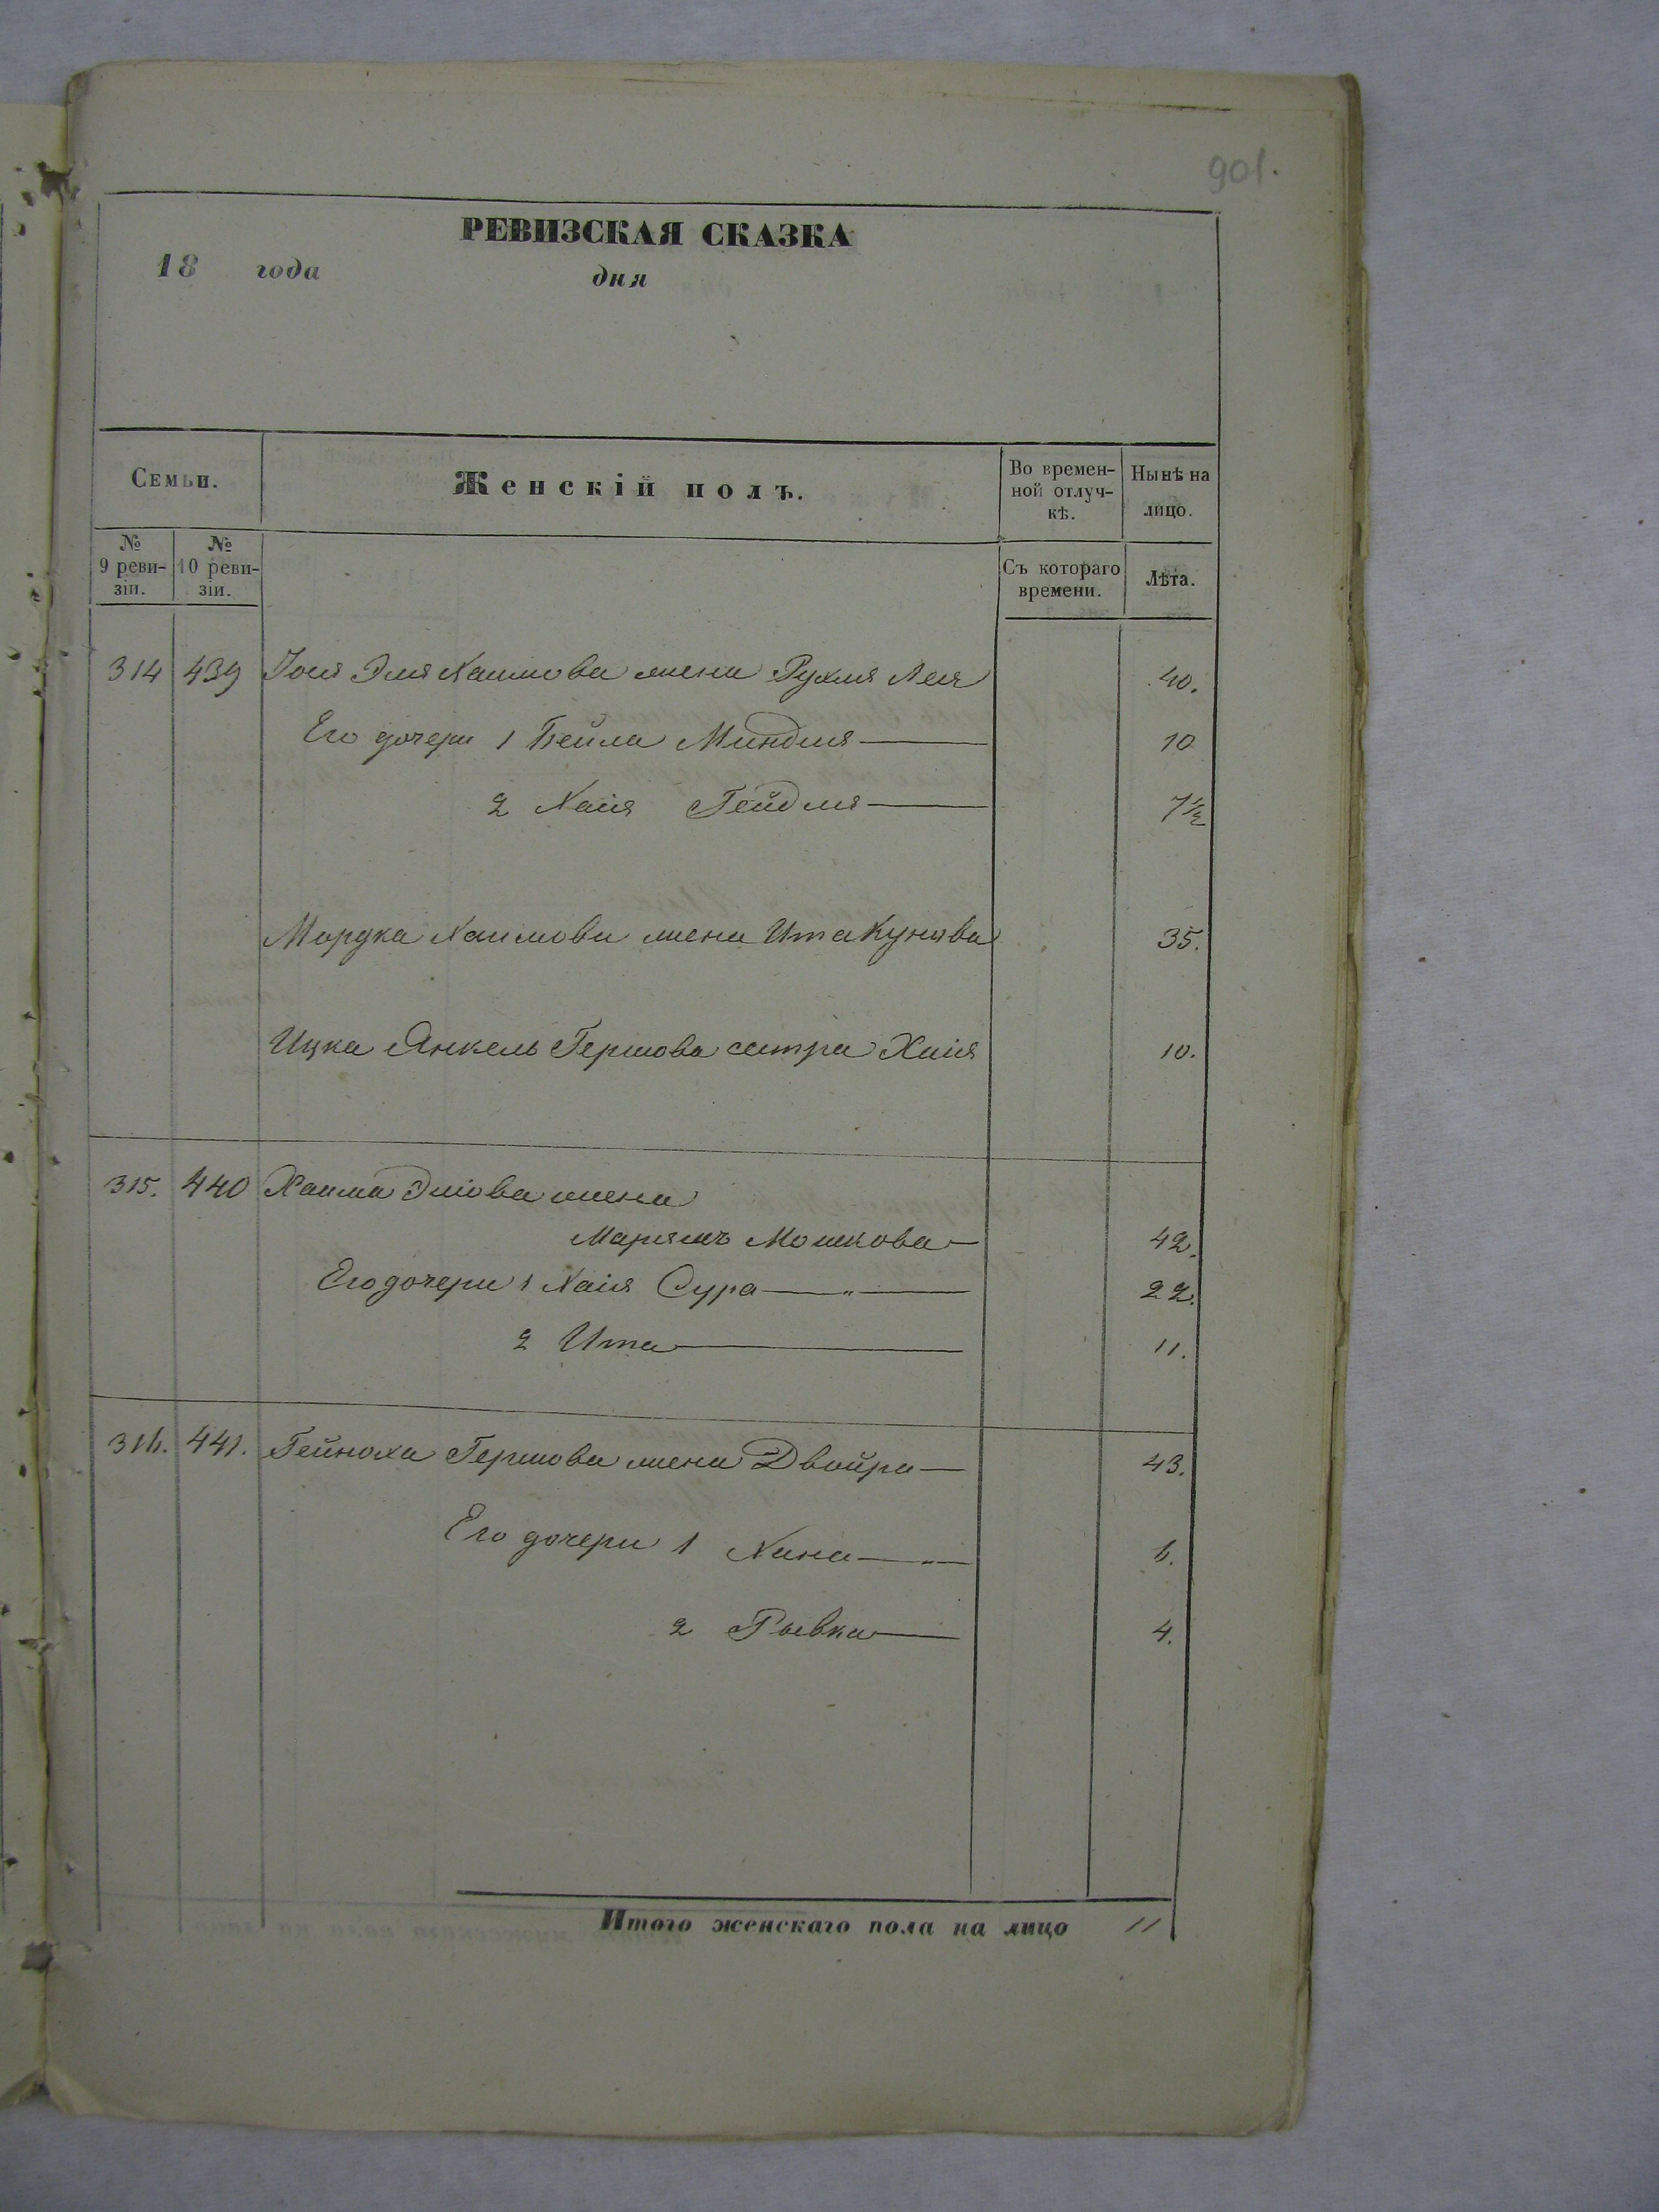 901.
РЕВИЗСКАЯ СКАЗКА
18 года дня
Семьи. Женскій полъ. Во времен- Нынѣ на
ной отлуч- лицо.
кѣ.
№ № 
9 реви- 10 реви- Съ котораго Лѣта.
зіи. зіи. времени.
314 439 Эля Хаимова жена Рухля Лея 40.
Его дочери 1 Бейла Миндля 10
2 Хаія Гейдля 7½
Мордка Хаимова жена Ита Кунова 35.
Ицка Янкель Гершова сестра Хаія 10.
315. 440 Хаима Эліова жена
Марьямъ Мошкова 42.
Его дочери 1 Хаія Сура 22.
2 Ита 11.
316. 441. Гейноха Гершова жена Двойра 43.
Его дочери 1 Хана 6.
2 Рывка 4.
Итого женскаго пола на лицо 11